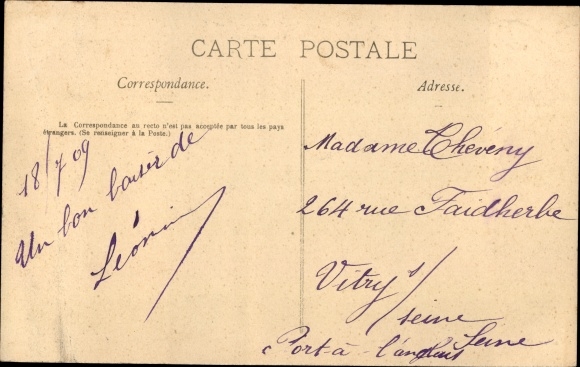 CARTE POSTALE
Correspondance.
La Correspondance au recto n'est pas acceptée par tous les pays
étrangers. (Se renseigner à la Poste.)
18/7 09
Un bon baiser de
Adresse.
Madame Chéveny
264 rue Faidherbe
Vitry s/
seine
Seine
Port-à-l'anglais